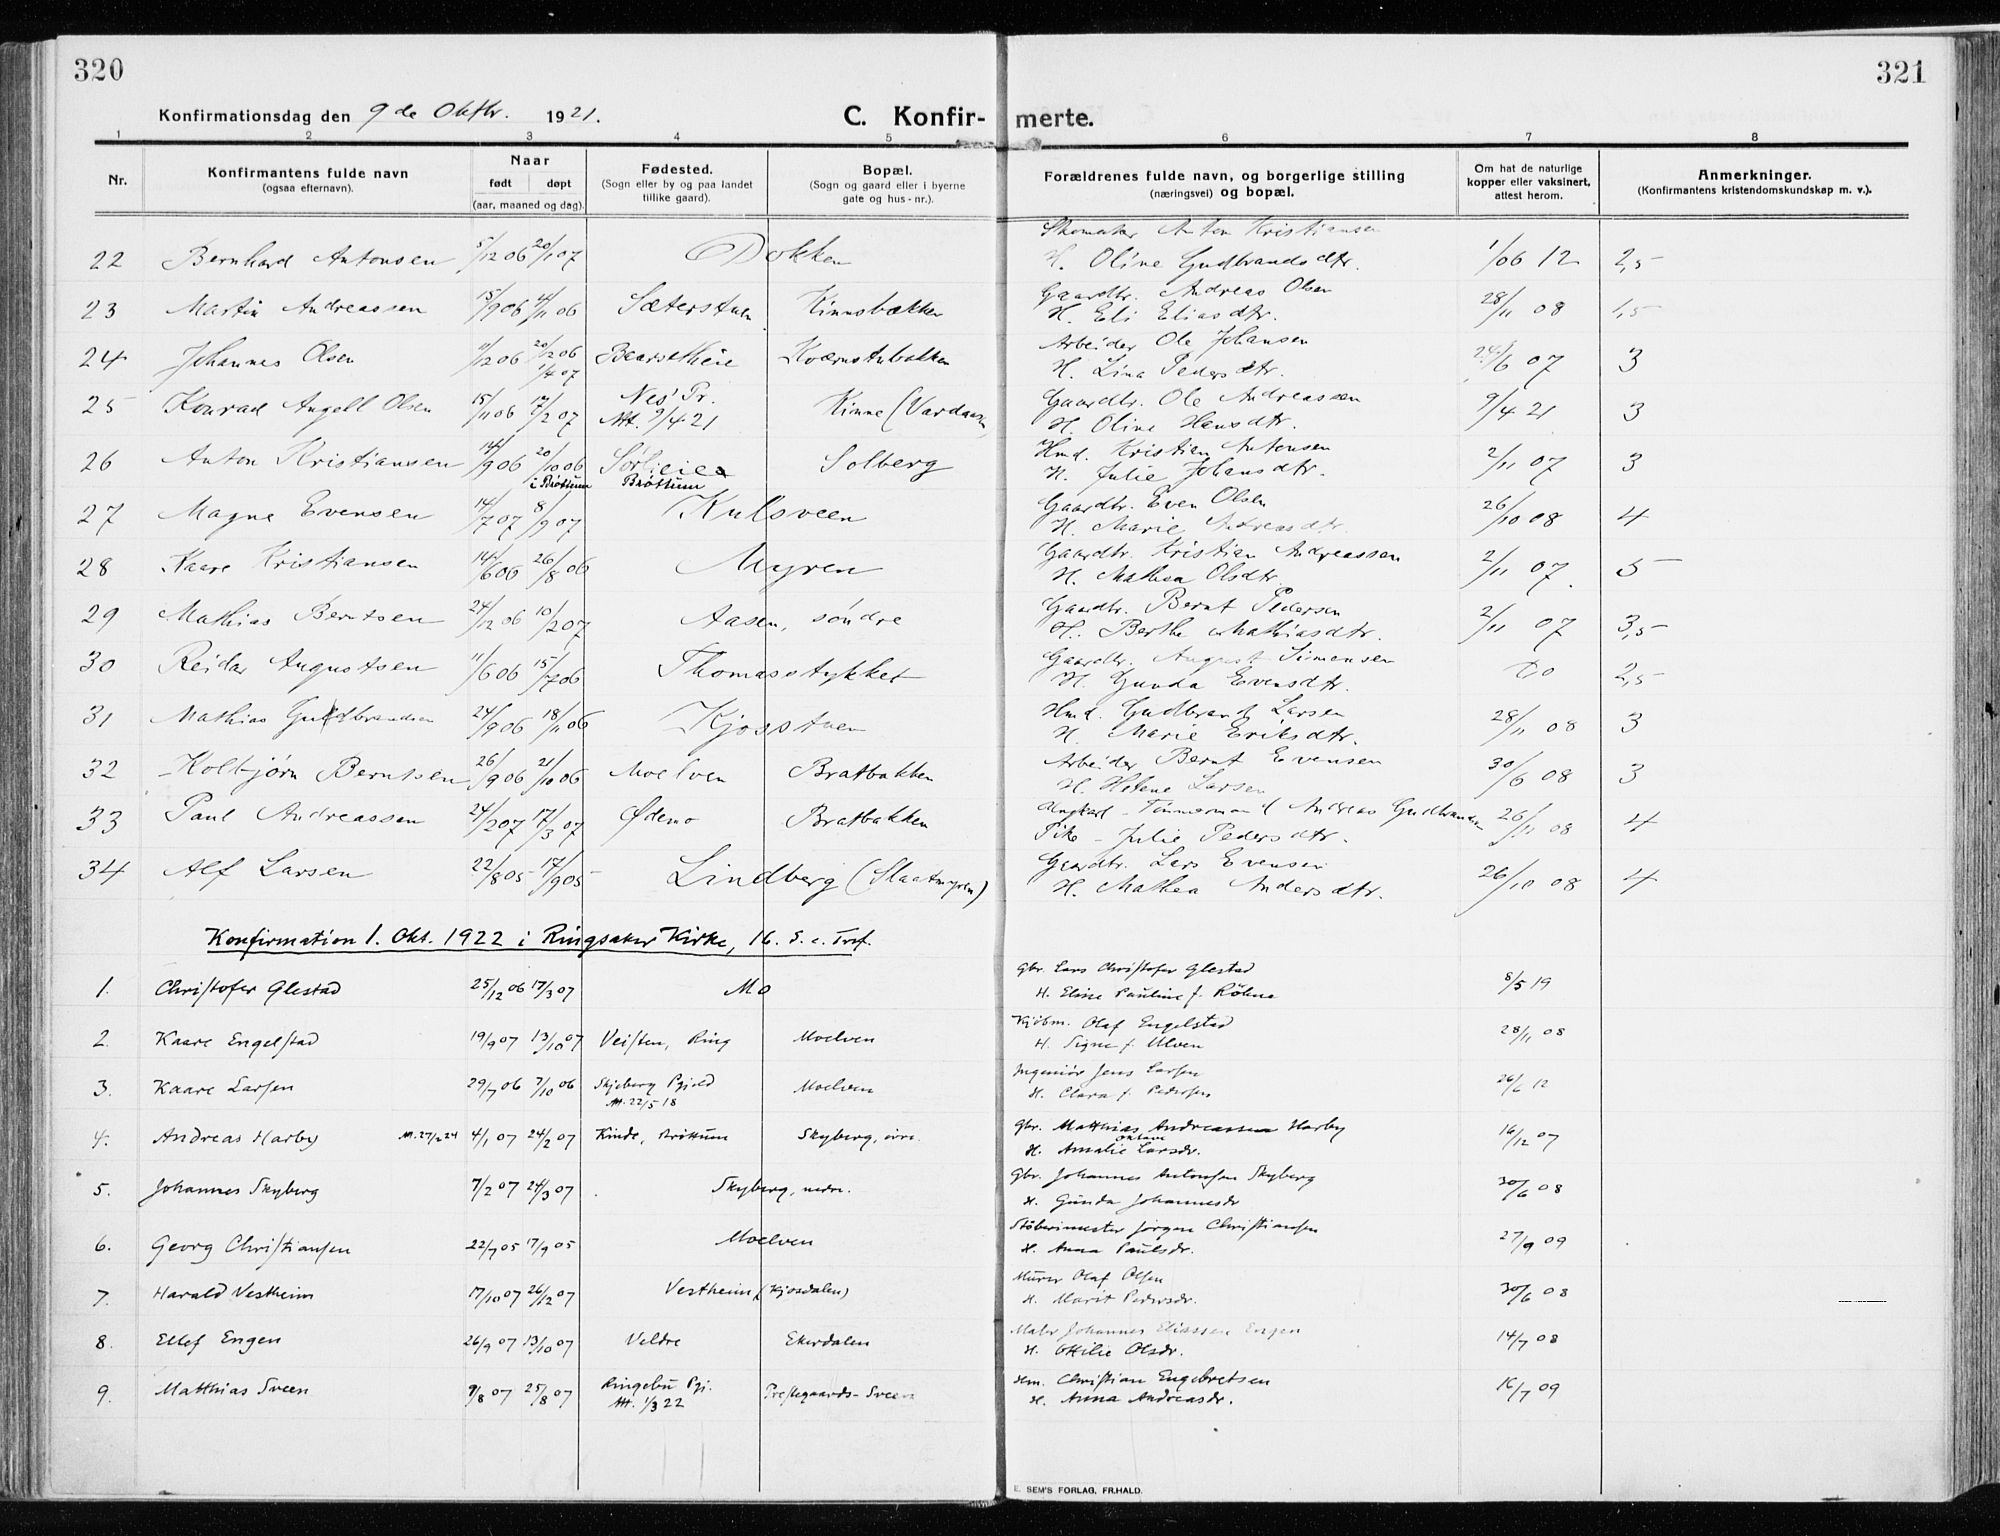 320
321
Konfirmationsdag den 9de Oktbr. 1921.
C. Konfir- merte.
1 2 3 4 5 6 7 8
Nr. Konfirmantens fulde navn (ogsaa efternavn). Naar født døpt (aar, maaned og dag). Fødested. (Sogn eller by og paa landet tillike gaard). Bopæl. (Sogn og gaard eller i byerne gate og hus-nr.). Forældrenes fulde navn, og borgerlige stilling (næringsvei) og bopæl. Om hat de naturlige kopper eller vaksinert, attest herom. Anmerkninger. (Konfirmantens kristendomskundskap m. v.).
Skomaker Anton Kristiansen
22 Bernhard Antonsen 5/12 06 20/1 07 Dokken H. Oline Gudbrandsdtr. 1/06 12 2,5
Gaardbr. Andreas Olsen
23 Martin Andreassen 15/9 06 4/11 06 Sæterstuen Kinnsbækken H. Eli Eliasdtr. 28/11 08 1,5
Arbeider Ole Johansen
24 Johannes Olsen 11/12 06 20/12 06 1/4 07 Kværnstubakken H. Lina Pedersdtr. 24/6 07 3
25 Konrad Angell Olsen 15/11 06 17/2 07 Nes' Pr. Kinne Gaardbr. Ole Andreassen 9/4 21 3
Att. 9/4 21 H. Oline Hansdtr.
Hmd. Kristian Antonsen
26 Anton Kristiansen 14/9 06 20/10 06 Sørlieie Solberg H. Julie Johansdtr. 2/11 07 3
i Brøttum Brøttum
Gaardbr. Even Olsen
27 Magne Evensen 14/7 07 8/9 07 Kulsveen H. Marie Andreasdtr. 26/10 08 4
Gaardbr. Kristian Andreassen
28 Kaare Kristiansen 14/6 06 26/8 06 Myren H. Mathea Olsdtr. 2/11 07. 5
Gaardbr. Bernt Pedersen
29 Mathias Berntsen 24/12 06 10/2 07 Aasen, søndre H. Berthe Mathiasdtr. 2/11 07 3,5
Gaardbr. August Simensen
30 Reidar Augustsen 11/6 06 15/7 06 Thomasstykket H. Gunda Evensdtr. Do 2,5
Hmd. Gudbrand Larsen
31 Mathias Gudbrandsen 24/9 06 18/11 06 Kjosstuen H. Marie Eriksdtr. 28/11 08 3
Arbeider Bernt Evensen
32 Kolbjørn Berntsen 26/9 06 21/10 06 Moelven Bratbakken H. Helene Larsen 30/6 08 3
Ungkarl - Tømmermand Andreas Gudbrandsen
33 Paul Andreassen 24/2 07 17/3 07 Ødemo Bratbakken Pike - Julie Pedersdtr. 26/11 08 4
Gaardbr. Lars Evensen
34 Alf Larsen 22/8 05 17/9 05 Lindberg (Slaatmyren) H. Mathea Andersdtr. 26/10 08 4
Konfirmation 1. Okt. 1922 i Ringsaker Kirke, 16. S. e. Tref.
Gbr. Lars Christofer Glestad
1. Christofer Glestad 25/12 06 17/3 07 Mo H. Elise Pauline f. Røhne 8/5 19
Kjøbm. Olaf Engelstad
2. Kaare Engelstad 19/9 07 13/10 07 Veisten, Ring Moelven H. Signe f. Ulven 28/11 08
Ingeniør Jens Larsen
3. Kaare Larsen 29/7 06 7/10 06 Skjeberg Pgjeld Moelven H. Clara f. Pedersen 26/6 12
Att. 22/5 18
Gbr. Matthias Andreassen Harby
4. Andreas Harby M. 27/2 24 4/1 07 24/2 07 Kinde, Brøttum Skyberg, øvre. H. Amalie Larsdr. 16/12 07
Gbr. Johannes Antonsen Skyberg
5. Johannes Skyberg 7/2 07 24/3 07 Skyberg, nedre. H. Gunda Johannesdr 30/6 08
Støberimester Jørgen Christiansen
6. Georg Christiansen 22/7 05 17/9 05 Moelven H. Anna Paulsdr. 27/9 09
Murer Olaf Olsen
7. Harald Vestheim 17/10 07 26/12 07 Vestheim (Kjosdalen) H. Marit Pedersdr. 30/6 08
Maler Johannes Eliassen Engen
8. Ellef Engen 26/9 07 13/10 07 Veldre Ekerdalen H. Otilie Olsdr. 14/7 08
9. Matthias Sveen 9/8 07 25/8 07 Ringebu Pgj. Prestegaards-Sveen Hm. Christian Engebretsen 16/7 09
Att. 1/3 22 H. Anna Andreasdr.
E. SEM'S FORLAG, FR.HALD.